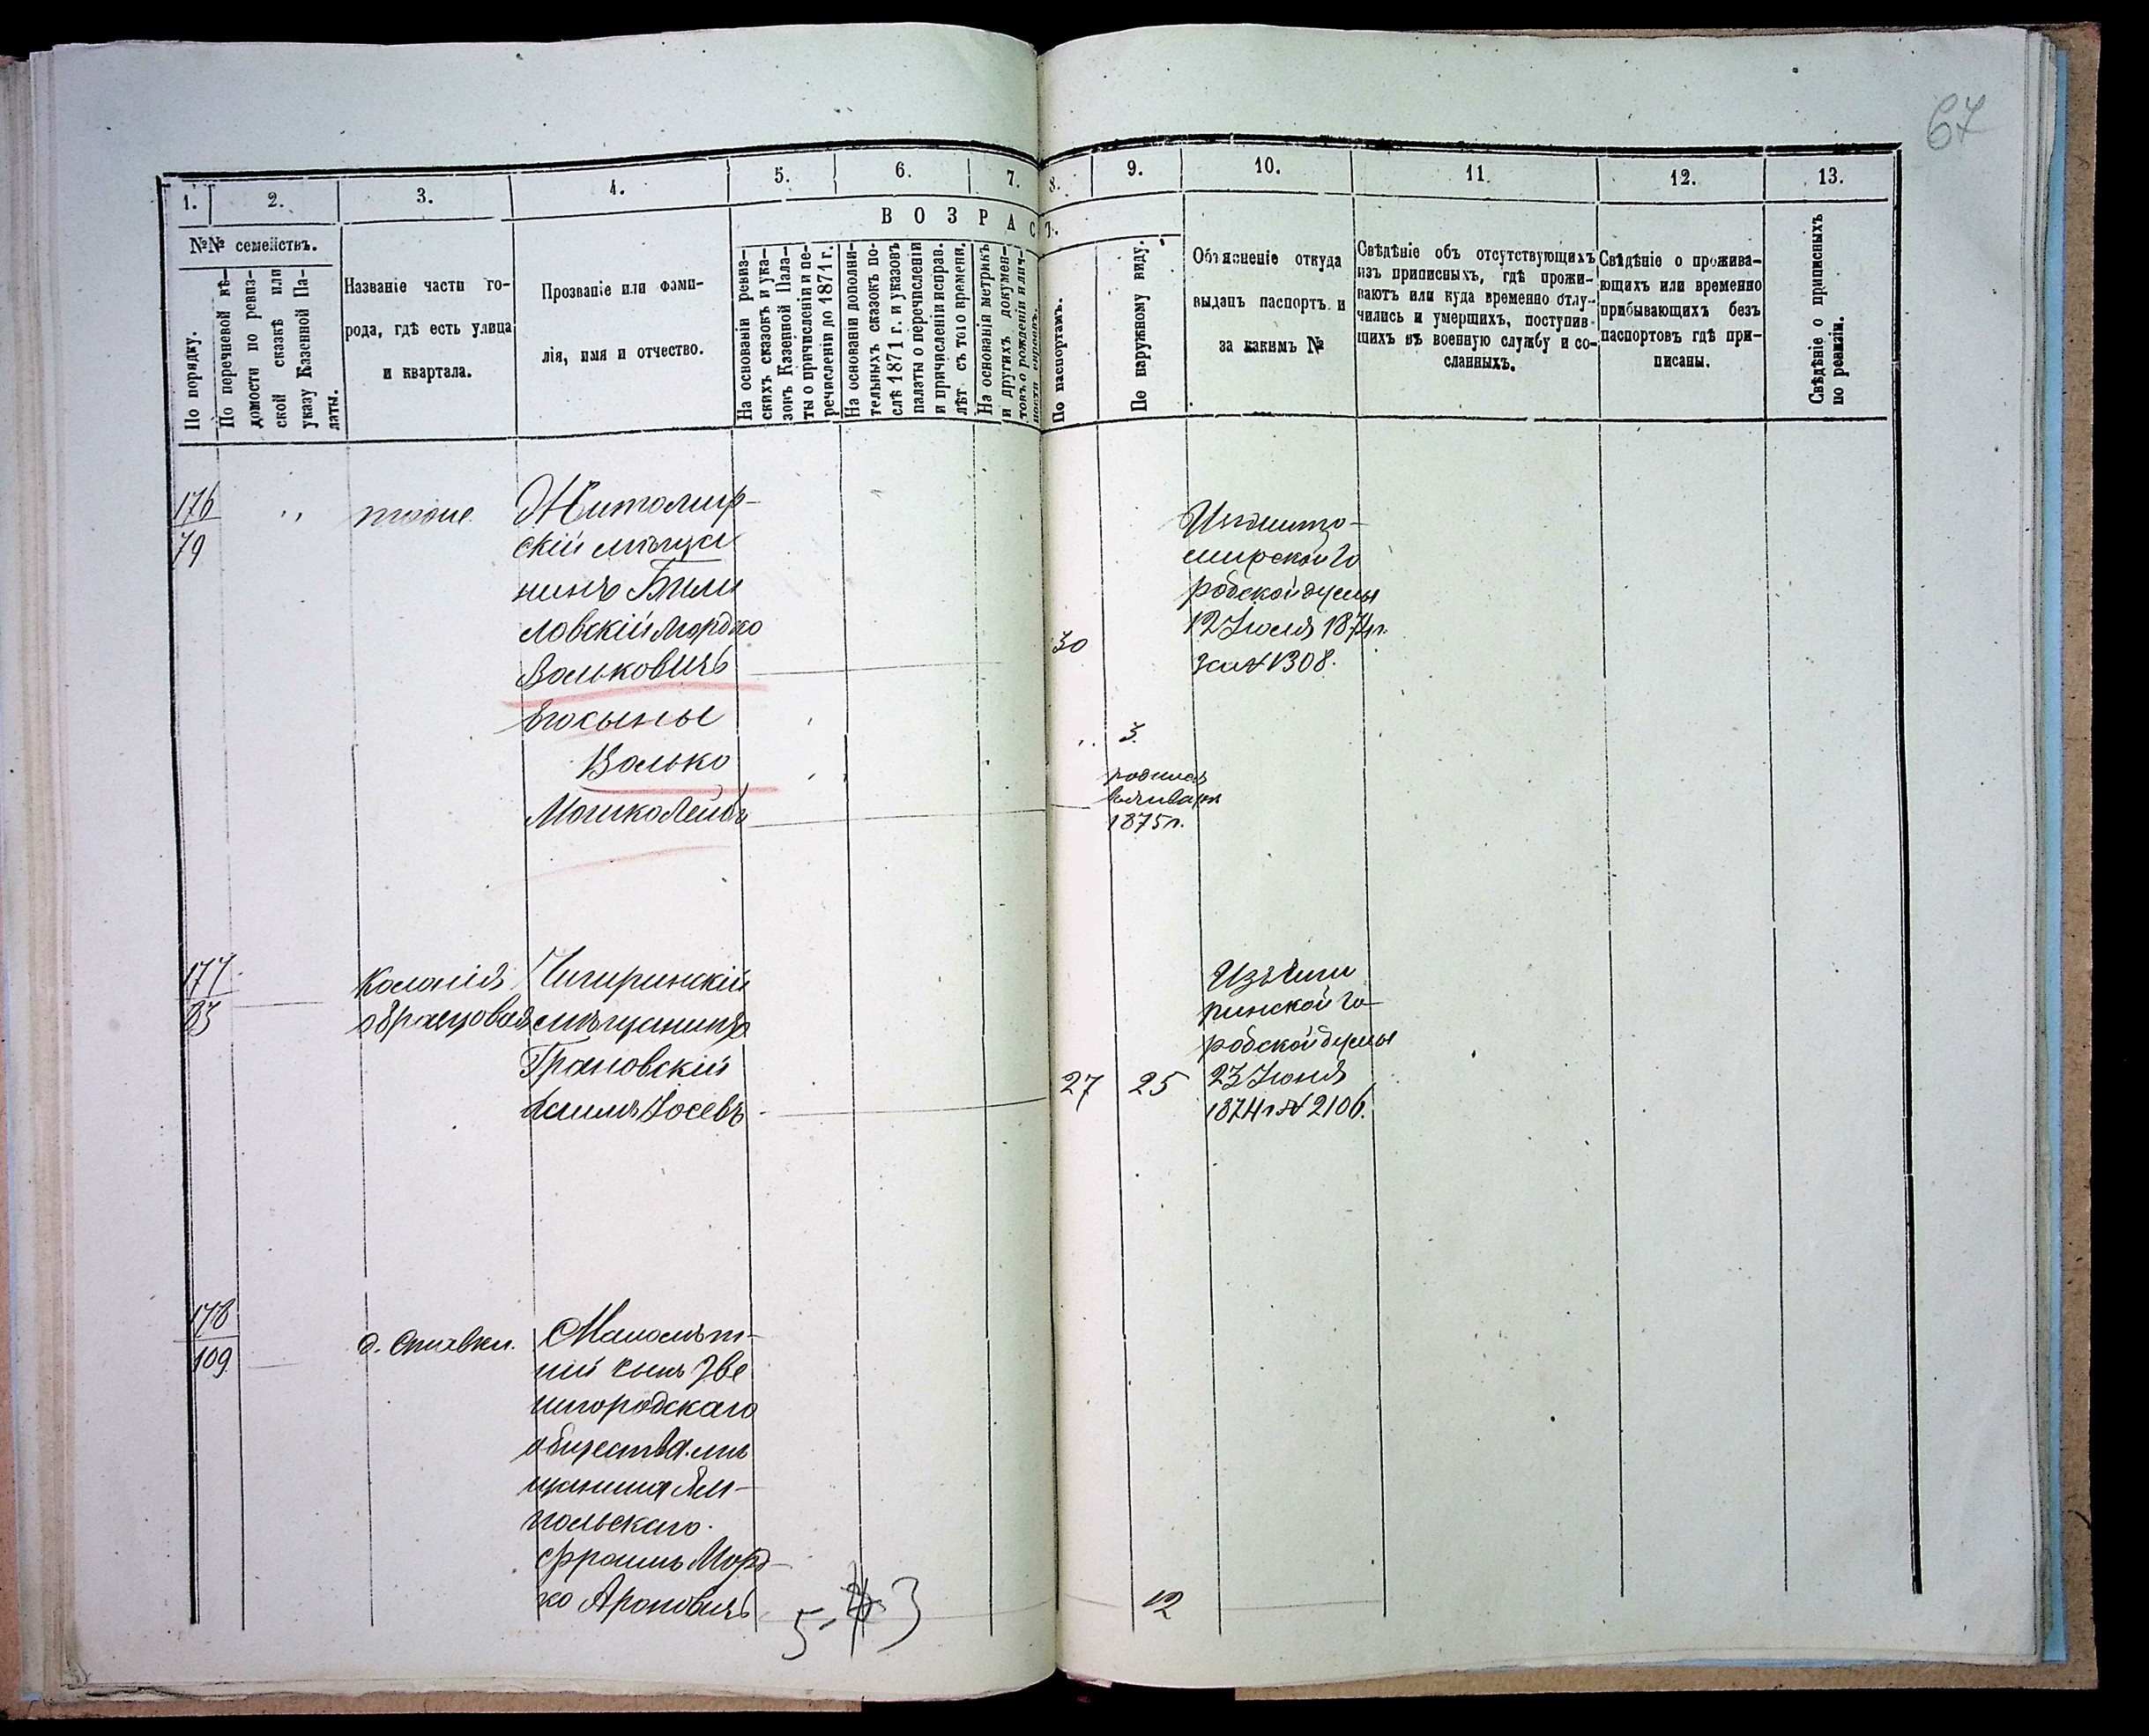 67
1.
2.
3.
4.
5.
6.
7.
8.
9.
10.
11.
12.
13.
№№ семействъ.
По порядку.
По перечневой вѣ-
домости по ревиз-
ской сказкѣ или
указу Казенной Па-
латы.
Названіе части го-
рода, гдѣ есть улица
и квартала.
Прозваніе или фами-
лія, имя и отчество.
ВОЗРАСТ.
На основаніи ревиз-
скихъ сказокъ и ука-
зокъ Казенной Пала-
ты о причисленіи и пе-
речисленіи до 1871 г.
На основаніи дополни-
тельныхъ сказокъ по-
слѣ 1871 г. и указовъ
палаты о перечисленіи
и причисленіи исправ.
лѣт съ того времени.
На основаніи метрикъ
и другихъ докумен-
товъ о рожденіи
По паспортамъ.
По наружному виду.
Объясненіе откуда
выданъ паспортъ и
за какимъ №
Свѣдѣніе объ отсутствующихъ
изъ приписныхъ, гдѣ прожи-
ваютъ или куда временно отлу-
чились и умершихъ, поступив-
шихъ въ военную службу и со-
сланныхъ.
Свѣдѣніе о прожива-
ющихъ или временно
прибывающихъ безъ
паспортовъ гдѣ при-
писаны.
Свѣдѣніе о приписныхъ
по ревизіи.
176
79
тоже
Житомир-
скій мѣща
нинъ Били
ловскій Мордко
Вольковичъ
30
Изъ Жито-
мирской Го
родской думы
12 Іюля 1874 г.
за № 1308.
Его сыны
Волько
3.
Мошко Лейбъ
родился
въ январѣ
1875 г.
177
83
Колонія
образцовая
Чигиринскій
мѣщанинъ
Грановскій
Хаимъ Іосевъ
27
25
Изъ Чиги
ринской Го-
родской думы
23 Іюня
1874 г. № 2106.
178
109
д. Ставки.
Малолѣт-
ній сынъ Зве
нигородскаго
общества мѣ
щанина Ям-
польскаго
Фроимъ Морд-
ко Ароновичъ
5-
3
12